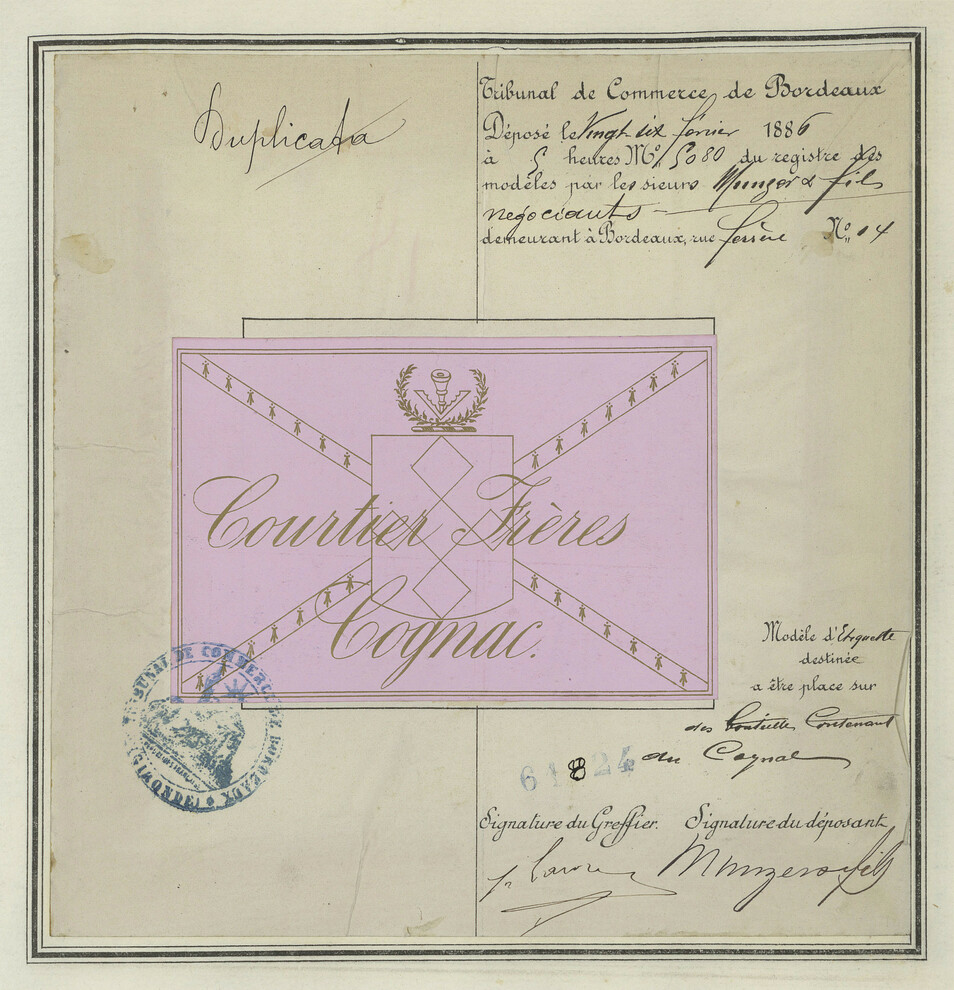 Duplicata
Tribunal de Commerce de Bordeaux
Déposé le Vingt six février 1886
à 5 heures M. N° 5080 du registre des
modèles par les sieurs Munzer & fils
négociants
demeurant à Bordeaux, rue Ferrère N° 14
Courtier Frères
Cognac.
TRIBUNAL DE COMMERCE DE BORDEAUX
(GIRONDE)
Modèle d'Etiquette
destinée
a être place sur
des bouteille Contenant
du Cognac
61824
Signature du Greffier. Signature du déposant
Munzer & fils